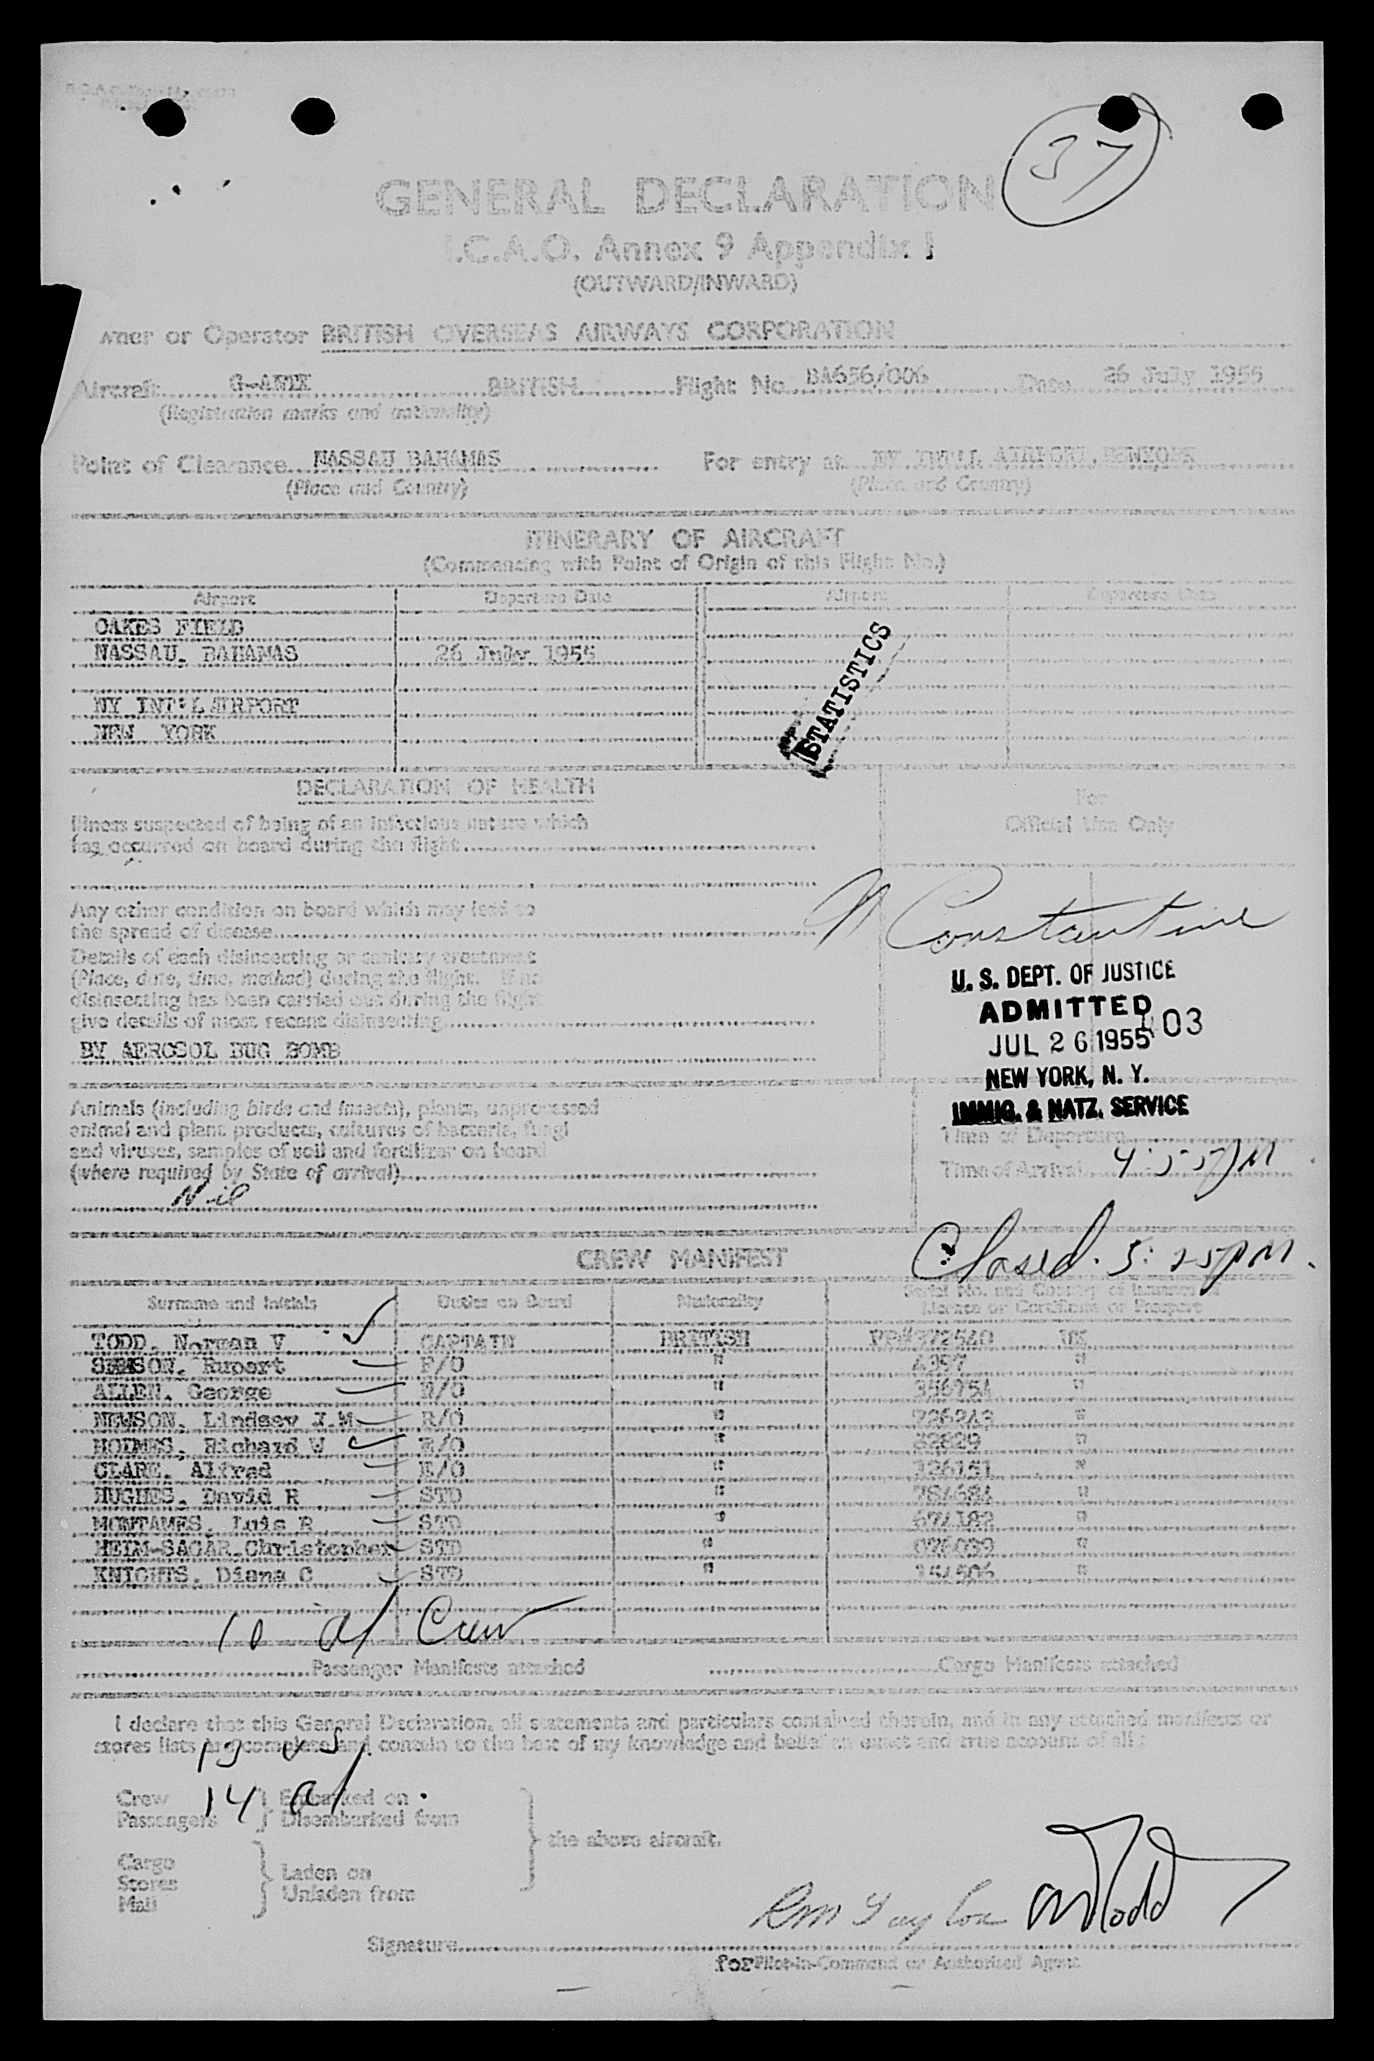 37
GENERAL DECLARATION
I.C.A.O. Annex 9 Appendix I
(OUTWARD/INWARD)
wner or Operator BRITISH OVERSEAS AIRWAYS CORPORATION
Aircraft BRITISH Flight No. BA656/006 Date 26 July 1955
(Registration marks and nationality)
Point of Clearance NASSAU BAHAMAS For entry at NY INT'L AIRPORT, NEWYORK
(Place and Country) (Place and Country)
ITINERARY OF AIRCRAFT
(Commencing with Point of Origin of this Flight No.)
Airport Departure Date Airport Departure Date
OAKES FIELD
NASSAU. BAHAMAS 26 July 1955
NY INT'L AIRPORT
NEW YORK
STATISTICS
DECLARATION OF HEALTH
For
Official Use Only
Illness suspected of being of an infectious nature which
has occurred on board during the flight
Any other condition on board which may lead to
the spread of disease
Details of each disinsecting or sanitary treatment
(Place, date, time, method) during the flight. If no
disinsecting has been carried out during the flight
give details of most recent disinsecting
BY AEROSOL BUG BOMB
N Constantine
U. S. DEPT. OF JUSTICE
ADMITTED
JUL 26 1955 403
NEW YORK, N. Y.
IMMIG. & NATZ. SERVICE
Animals (including birds and insects), plants, unprocessed
animal and plant products, cultures of bacteria, fungi
and viruses, samples of soil and fertilizer on board
(where required by State of arrival)
Nil
Time of Departure
Time of Arrival 4:55PM
Closed. 5:25PM.
CREW MANIFEST
Surname and Initials Duties on Board Nationality Serial No. and Country of Issuance of
Licence or Certificate or Passport
TODD. Norman V CAPTAIN BRITISH PP# 372540 UK
Rupert F/O " 4397 "
ALLEN. George N/O " 356754 "
NEWSON. Lindsey J.M R/O " 726243 "
HOLMES. Richard W E/O " 32829 "
CLARE. Alfred E/O " 126151 "
HUGHES. David R STD " 784684 "
Luis R STD " 674182 "
HEIM-SAGAR. Christopher STD " 076039 "
KNIGHTS. Diana C STD " 154506 "
10 al Crew
Passenger Manifests attached Cargo Manifests attached
I declare that this General Declaration, all statements and particulars contained therein, and in any attached manifests or
stores lists are complete and contain to the best of my knowledge and belief an exact and true account of all :
13 us
Crew 14 al Embarked on
Passengers Disembarked from
the above aircraft.
Cargo
Stores Laden on
Mail Unladen from
RM Taylor NVTodd
Signature
for Pilot-in-Command or Authorised Agent